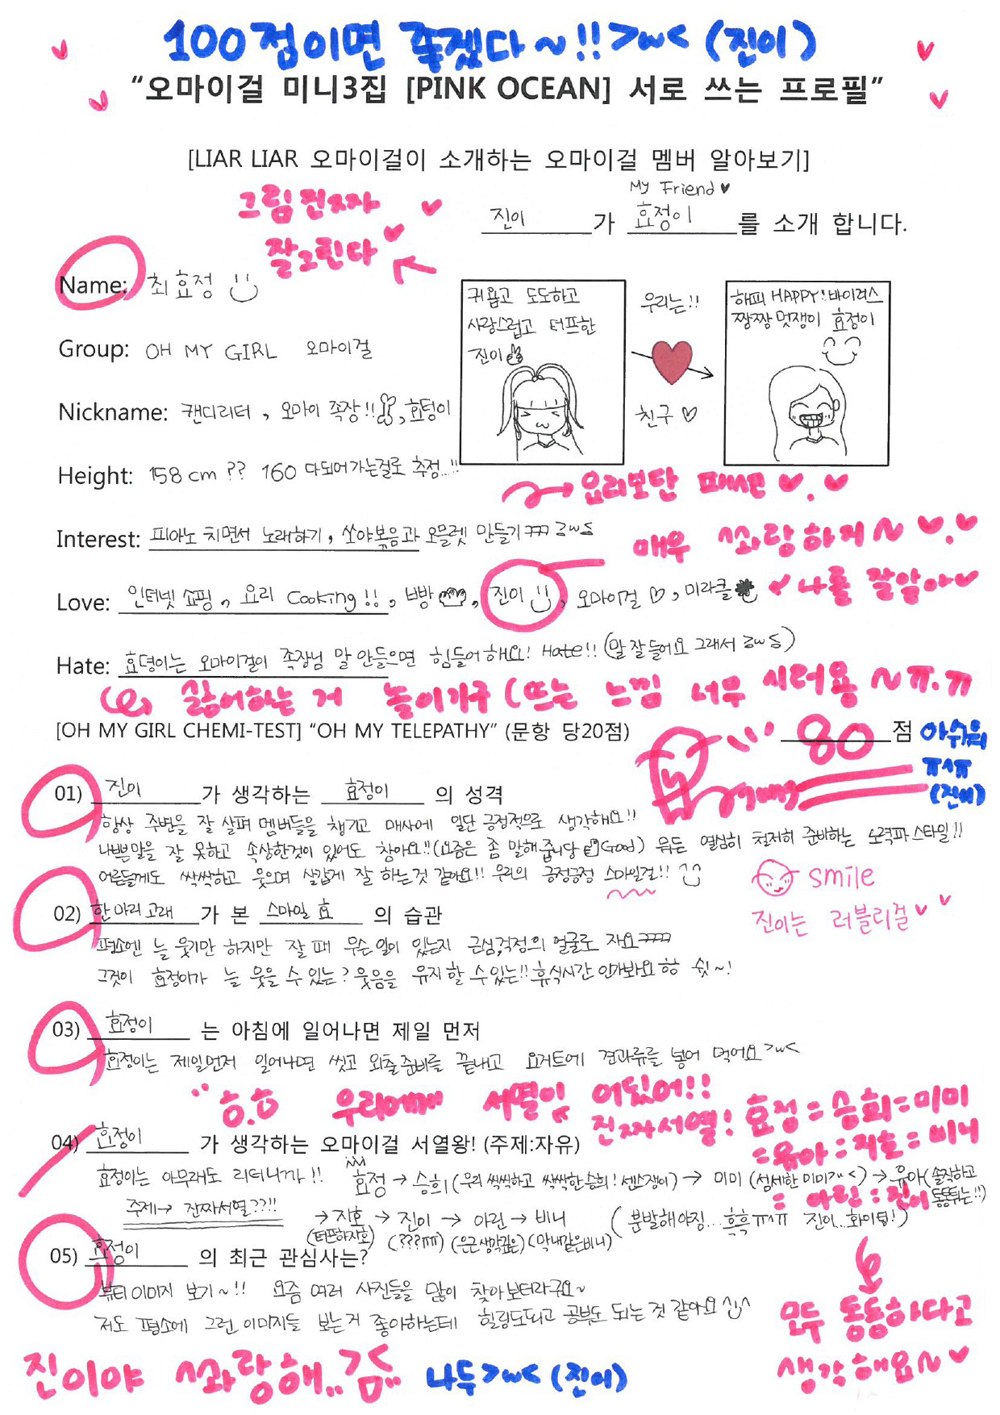 100점이면 좋겠다~!! >w< (진이)
“오마이걸 미니3집 [PINK OCEAN] 서로 쓰는 프로필”
[LIAR LIAR 오마이걸이 소개하는 오마이걸 멤버 알아보기]
My Friend ♥
진이 가 효정이 를 소개 합니다.
그림 진짜
잘그린다
Name: 최효정
귀욥고 도도하고
사랑스럽고 터프한
진이
우리는!!
친구 ♡
해피 HAPPY! 바이러스
짱짱 멋쟁이 효정이
Group: OH MY GIRL 오마이걸
Nickname: 캔디리더, 오마이 족장!!, 효텅이
Height: 158cm ?? 160 다되어가는걸로 추정..!!
요리보단 패션 ♥.♥
Interest: 피아노 치면서 노래하기, 쏘야볶음과 오믈렛 만들기ㅋㅋㅋ >w<
매우 쏴랑하지~♥.♥
Love: 인터넷 쇼핑, 요리 Cooking!!, 빠빵, 진이, 오마이걸 ♡, 미라클
나를 잘알아♥
Hate: 효뎡이는 오마이걸이 족장님 말 안들으면 힘들어해요! Hate!! (말 잘 들어요 그래서 >w<)
싫어하는 거 놀이기구 (뜨는 느낌 너무 시러용~ㅠ.ㅠ
[OH MY GIRL CHEMI-TEST] “OH MY TELEPATHY” (문항 당20점)
80 점
아쉬워
ㅠ^ㅠ
(진이)
01) 진이 가 생각하는 효정이 의 성격
항상 주변을 잘 살펴 멤버들을 챙기고 매사에 일단 긍정적으로 생각해요!!
나쁜말을 잘 못하고 속상한것이 있어도 참아요!! (요즘은 좀 말해줍니당 Good) 뭐든 열심히 철저히 준비하는 노력파 스타일!!
어른들께도 싹싹하고 웃으며 살갑게 잘 하는것 같아요!! 우리의 긍정긍정 스마일걸!!
smile
진이는 러블리걸 ♥ ♥
02) 한 마리 고래 가 본 스마일 효 의 습관
평소엔 늘 웃기만 하지만 잘 때 무슨 일이 있는지 근심, 걱정의 얼굴로 자요ㅋㅋㅋㅋ
그것이 효정이가 늘 웃을 수 있는? 웃음을 유지 할 수 있는!! 휴식시간 인가봐요 항 쉿~!
03) 효정이 는 아침에 일어나면 제일 먼저
효정이는 제일먼저 일어나면 씻고 외출준비를 끝내고 요거트에 견과류를 넣어 먹어요 >w<
ㅎ.ㅎ 우리에게 서열이 어딨어!!
진짜서열! 효정=승희=미미
=유아=지호=비니
=아린=진이
04) 효정이 가 생각하는 오마이걸 서열왕! (주제:자유)
효정이는 아무래도 리더니까!! 효정 → 승희 (무리 씩씩하고 싹싹한 승희! 센스쟁이) → 미미 (섬세한 미미 >w<) → 유아 (솔직하고 통통튀는!!)
주제→ 진짜서열??!!
→ 지호 → 진이 → 아린 → 비니 (분발해야징... 흑흑 ㅠ^ㅠ 진이..화이팅!)
(터프하지호) (???ㅠㅠ) (은근 생각깊은) (막내같은비니)
05) 효정이 의 최근 관심사는?
뷰티 이미지 보기~!! 요즘 여러 사진들을 많이 찾아 보더라구요~
저도 평소에 그런 이미지들 보는거 좋아하는데 힐링도되고 공부도 되는 것 같아요
모두 동등하다고
생각해요~♥
진이야 쏴랑해..
나두 >w< (진이)